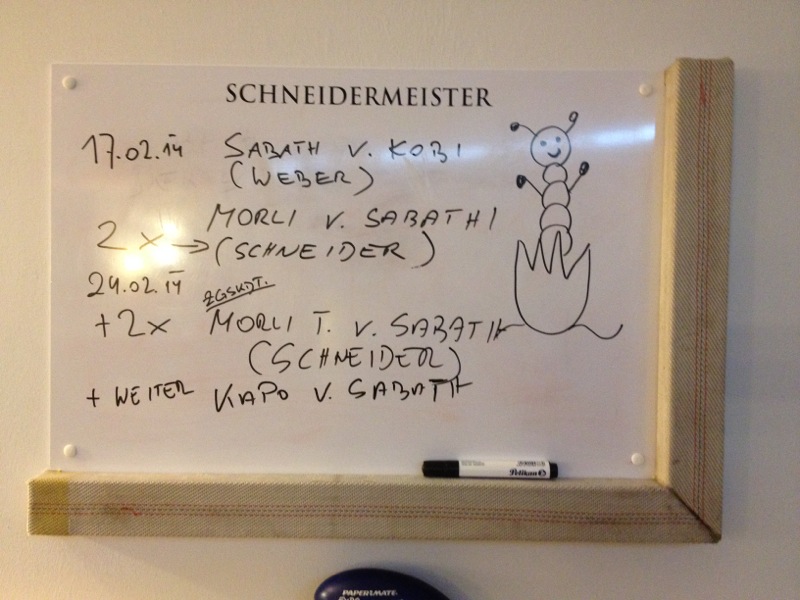 SCHNEIDERMEISTER
17.02.14 SABATH V. KOBI
(WEBER)
MORLI V. SABATHI
2 x → (SCHNEIDER)
24.02.14 ZGSKDT.
+2x MORLI T. V. SABATH
(SCHNEIDER)
+ WEITER KAPO V. SABATH
Pelikan
PAPERMATE